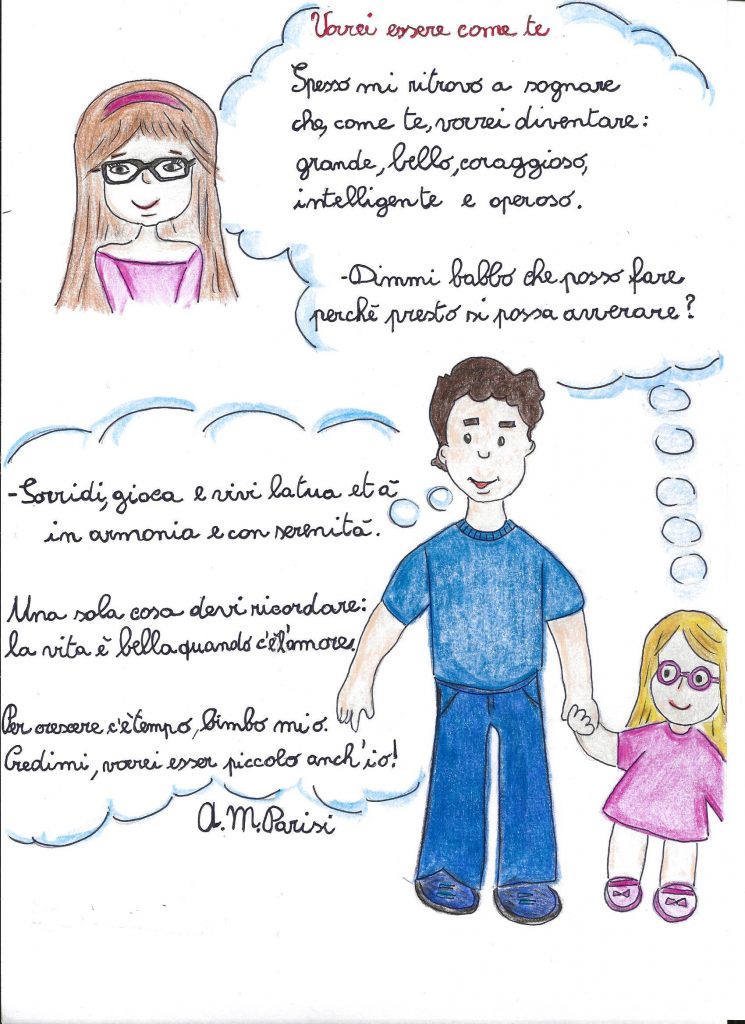 Vorrei essere come te
Spesso mi ritrovo a sognare
che, come te, vorrei diventare:
grande, bello, coraggioso,
intelligente e operoso.
-Dimmi babbo che posso fare
perchè presto si possa avverare?
-Sorridi, gioca e vivi la tua età
in armonia e con serenità.
Una sola cosa devi ricordare:
la vita è bella quando c'è l'amore.
Per crescere c'è tempo, bimbo mio.
Credimi, vorrei esser piccolo anch'io!
A.M.Parisi